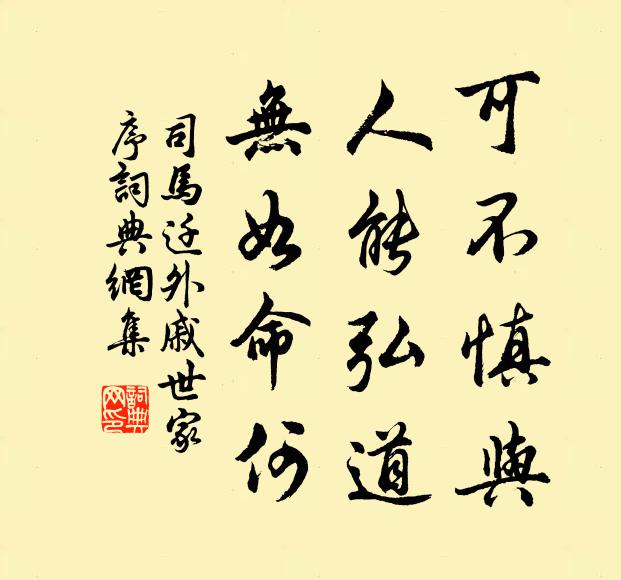 可不慎與
人能弘道
無如命何
司馬迁外戚世家
序詞典網集
詞典
网印